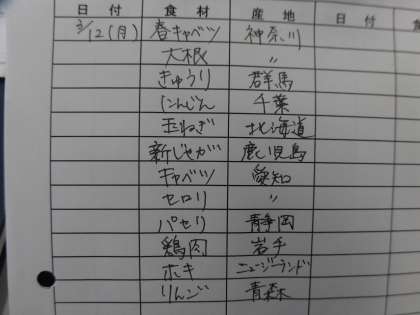 日 付 食 材 産 地 日 付 食
3/12(月) 春キャベツ 神奈川
大根 〃
きゅうり 群馬
にんじん 千葉
玉ねぎ 北海道
新じゃが 鹿児島
キャベツ 愛知
セロリ 〃
パセリ 静岡
鶏肉 岩手
ホキ ニュージーランド
りんご 青森